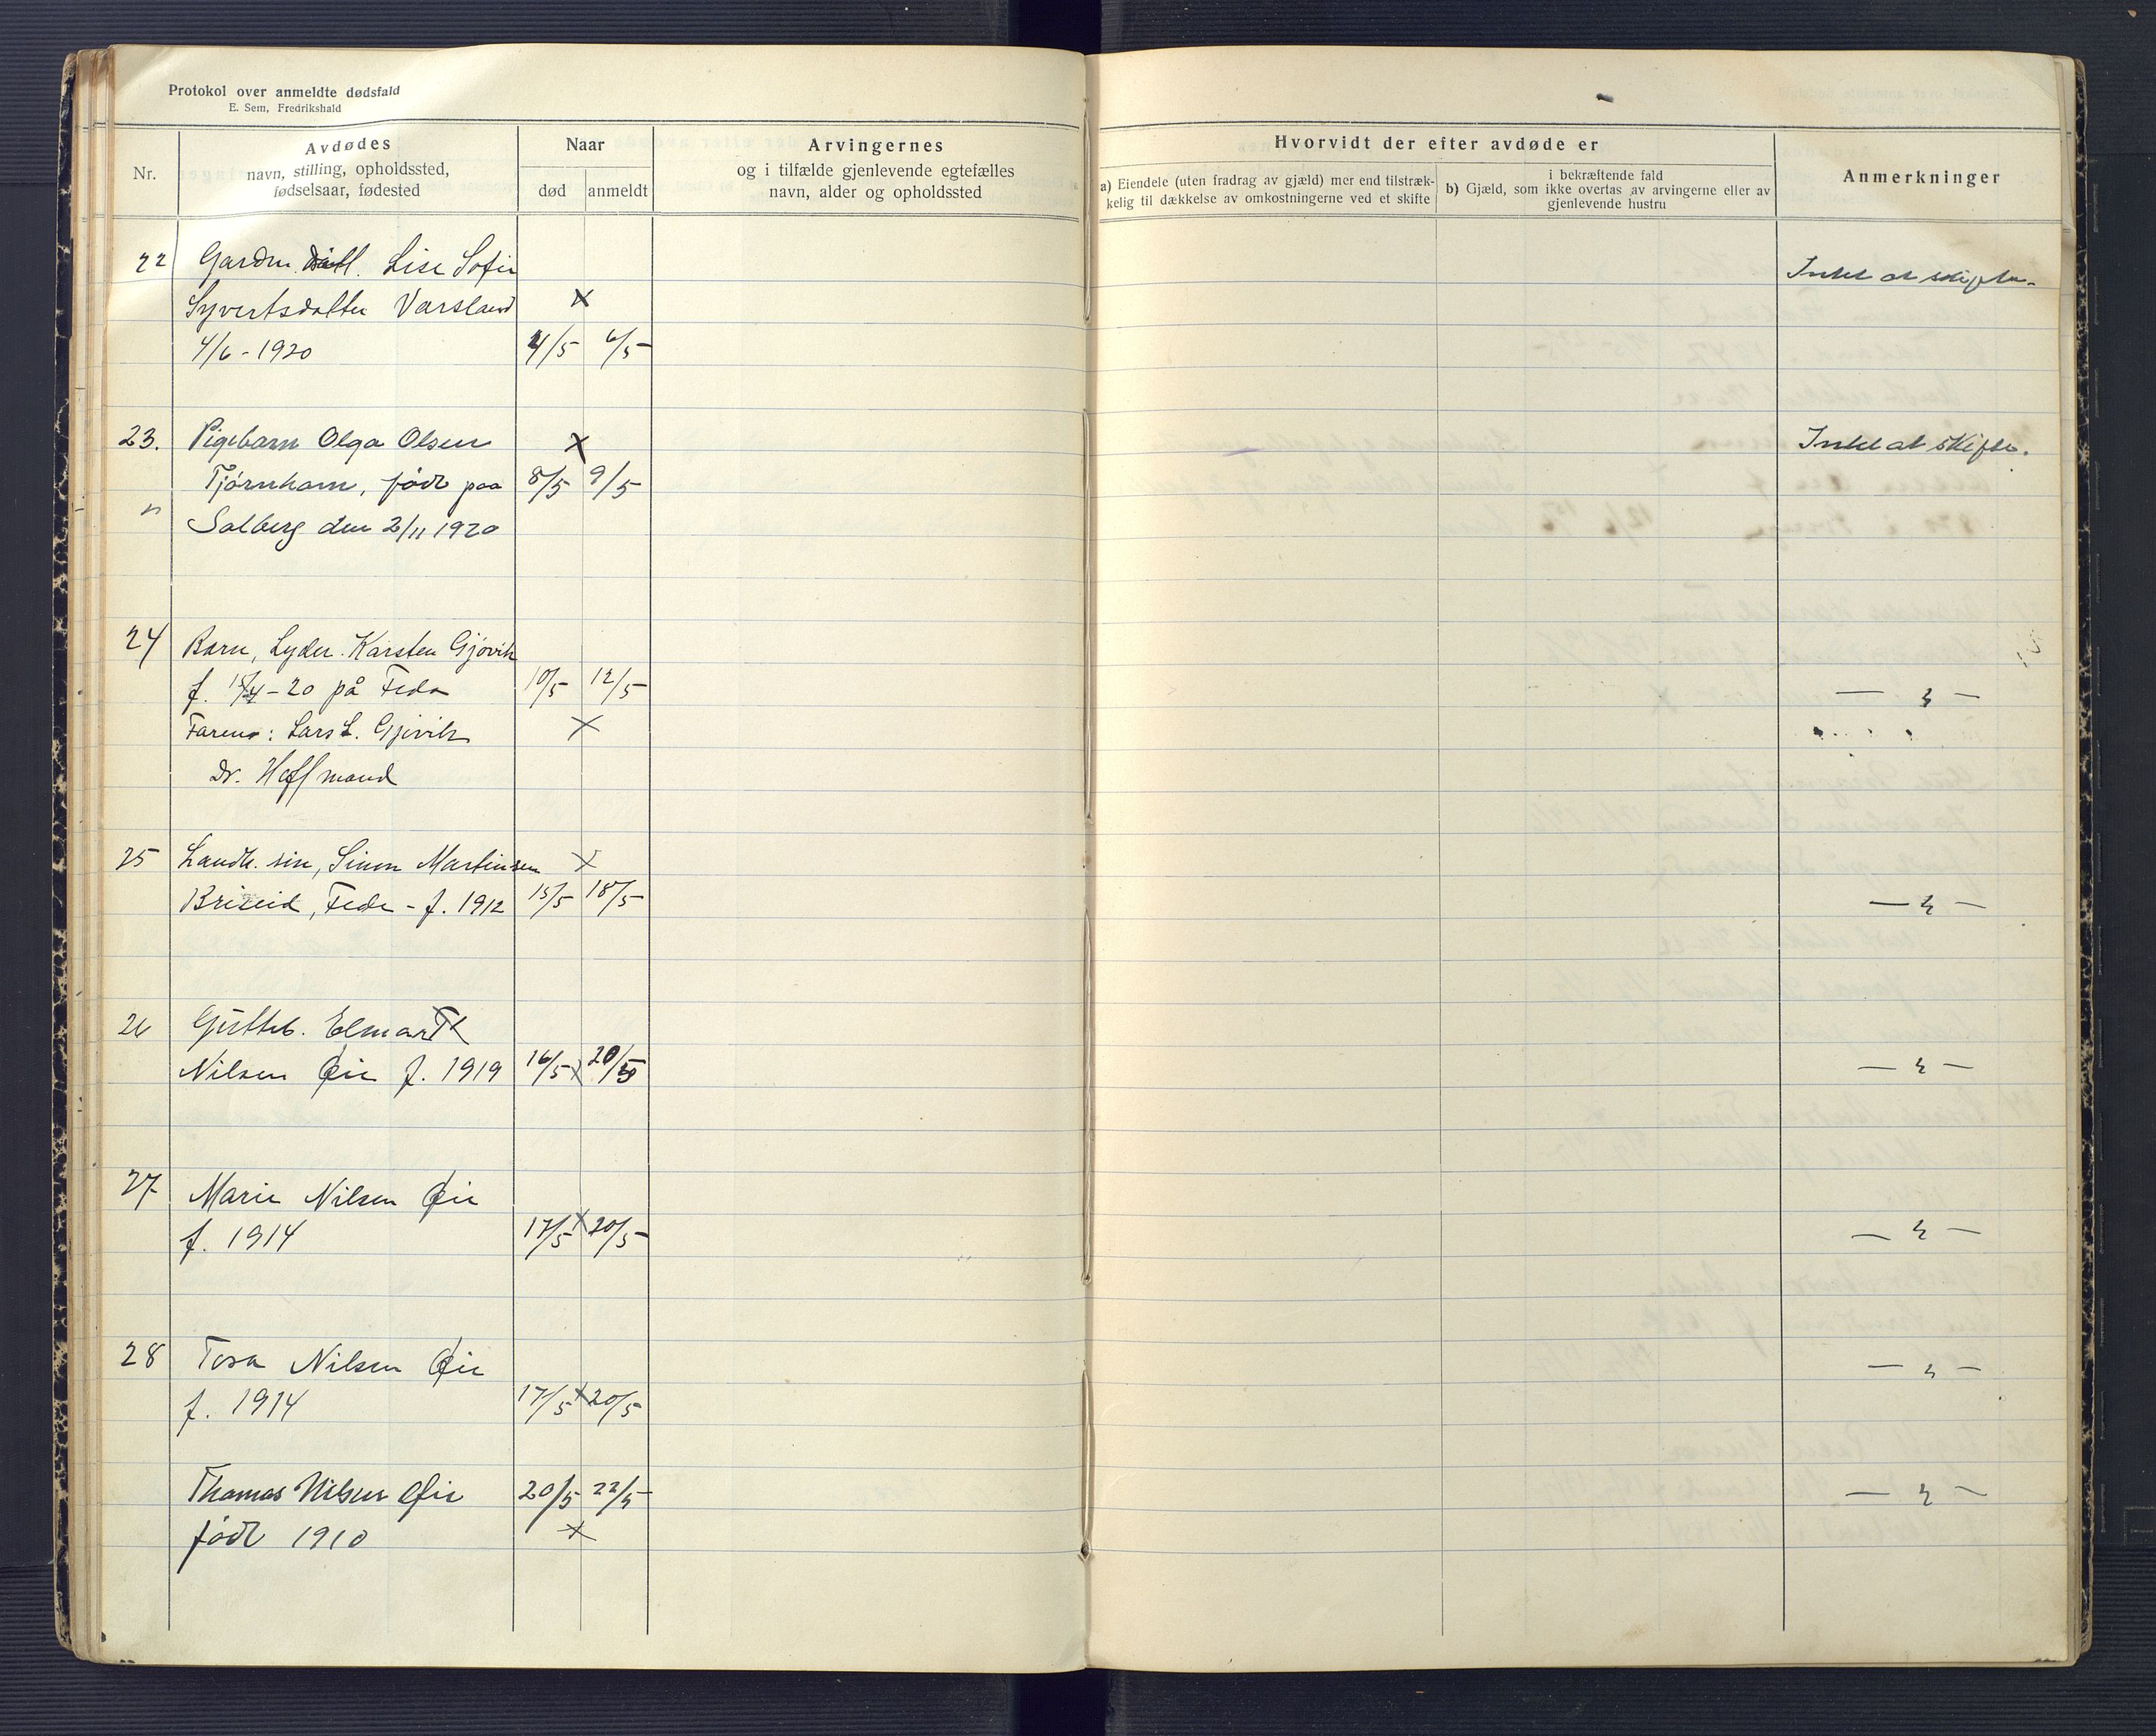 Protokol over anmeldte dødsfald
E. Sem, Fredrikshald
Nr.
Avdødes
navn, stilling, opholdssted,
fødselsaar, fødested
Naar
død
anmeldt
Arvingernes
og i tilfælde gjenlevende egtefælles
navn, alder og opholdssted
Hvorvidt der efter avdøde er
a) Eiendele (uten fradrag av gjæld) mer end tilstræk-
kelig til dækkelse av omkostningerne ved et skifte
i bekræftende fald
b) Gjæld, som ikke overtas av arvingerne eller av
gjenlevende hustru
Anmerkninger
22 Gardm. Lise Sofie Intet at skifte.
Syvertsdatter Varsland x
4/6 - 1920 4/5 6/5
23. Pigebarn Olga Olsen x Intet at skifte.
Tjørnhom, født paa 8/5 9/5
Salberg den 2/11 1920
24 Barn, Lyder Karsten Gjøvik
f. 15/4 - 20 på Feda 10/5 12/5 — " —
Faren: Lars L. Gjøvik x
dr. Hoffmand
25 Landh. søn, Simon Martinsen x
Briseid, Feda - f. 1912 15/5 18/5 — " —
26 Gutteb. Elmar
Nilsen Øie f. 1919 16/5 x 20/5 — " —
27 Marie Nilsen Øie
f. 1914 17/5 x 20/5 — " —
28 Tora Nilsen Øie — " —
f. 1914 17/5 x 20/5
Thomas Nilsen Øie 20/5 22/5 — " —
født 1910 x